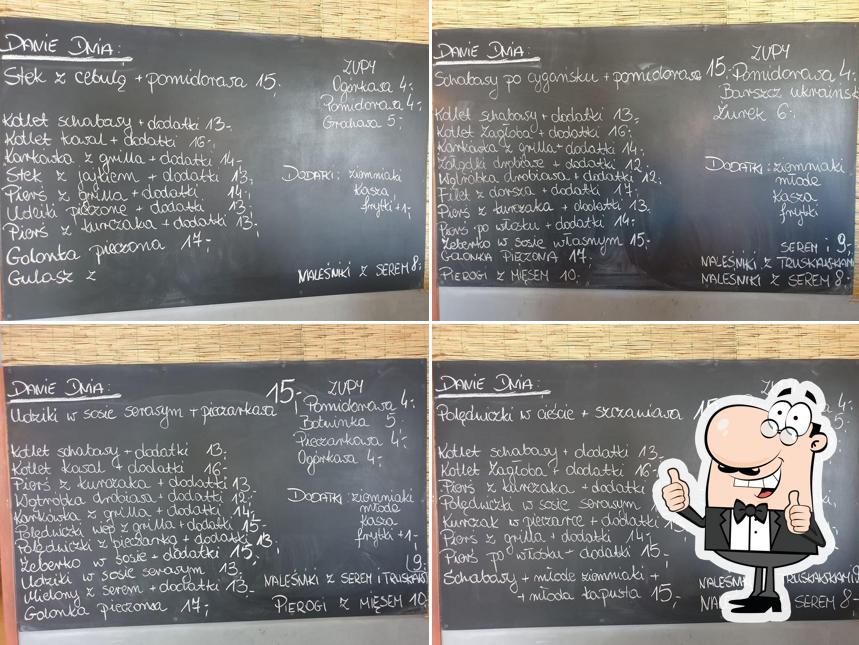 DANIE DNIA:
Stek z cebulą + pomidorowa 15,
ZUPY
Ogórkowa 4,-
Pomidorowa 4,-
Grochowa 5,-
Kotlet schabowy + dodatki 13,-
Kotlet kowal + dodatki 16,-
Karkówka z grilla + dodatki 14,-
Stek z jajkiem + dodatki 13,-
Pierś z grilla + dodatki 14,-
Udziki pieczone + dodatki 13,-
Pierś z kurczaka + dodatki 13,-
Golonka pieczona 17,-
Gulasz z
DODATKI: ziemniaki
kasza
frytki +1,-
NALEŚNIKI Z SEREM 8,-
DANIE DNIA:
Schabowy po cygańsku + pomidorowa 15,-
ZUPY
Pomidorowa 4,-
Barszcz ukraińsk
Żurek 6,-
Kotlet schabowy + dodatki 13,-
Kotlet Zagłoba + dodatki 16,-
Karkówka z grilla + dodatki 14,-
Żołądki drobiowe + dodatki 12,-
Wątróbka drobiowa + dodatki 12,-
Filet z dorsza + dodatki 17,-
Pierś z kurczaka + dodatki 13,-
Pierś po włosku + dodatki 14,-
Żeberko w sosie własnym 15,-
GOLONKA PIECZONA 17,-
PIEROGI Z MIĘSEM 10,-
DODATKI: ziemniaki
młode
kasza
frytki
SEREM i 9,-
NALEŚNIKI Z TRUSKAWKAMI
NALEŚNIKI Z SEREM 8,-
DANIE DNIA:
Udziki w sosie serowym + pieczarkowa 15,-
ZUPY
Pomidorowa 4,-
Botwinka 5,-
Pieczarkowa 4,-
Ogórkowa 4,-
Kotlet schabowy + dodatki 13,-
Kotlet kowal + dodatki 16,-
Pierś z kurczaka + dodatki 13,-
Wątróbka drobiowa + dodatki 12,-
Karkówka z grilla + dodatki 14,-
Polędwiczki wep z grilla + dodatki 15,-
Polędwiczki z pieczarką + dodatki 13,-
Żeberko w sosie + dodatki 15,-
Udziki w sosie serowym 13,-
Mielony z serem + dodatki 13,-
Golonka pieczona 17,-
DODATKI: ziemniaki
młode
kasza
frytki +1,-
9,-
NALEŚNIKI Z SEREM I TRUSKAW
PIEROGI Z MIĘSEM 10,-
DANIE DNIA:
Polędwiczki w cieście + szczawiowa
ZUPY
4,-
Kotlet schabowy + dodatki 13,-
Kotlet Zagłoba + dodatki 16,-
Pierś z kurczaka + dodatki
Polędwiczki w sosie serowym
Kurczak w pieczarce + dodatki
Pierś z grilla + dodatki 14,-
Pierś po włosku + dodatki 15,-
Schabowy + młode ziemniaki +
+ młoda kapusta 15,-
SEREM 8,-